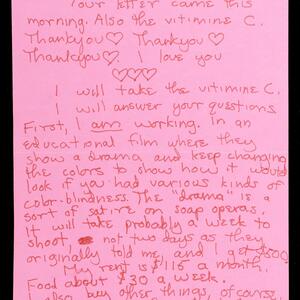 Your letter came this
morning. Also the vitimine C.
Thankyou♡ Thankyou♡
Thankyou♡. I love you
♡♡♡
I will take the vitimine C.
I will answer your questions
First, I am working. In an
educational film where they
show a drama and keep changing
the colors to show how it would
look if you had various kinds of
color-blindness. The "drama" is a
sort of satire on soap operas.
It will take probably a week to
shoot, not two days as they
originally told me, and I get $500.
My rent is $116 a month.
Food about $30 a week.
I also buy other things, of course